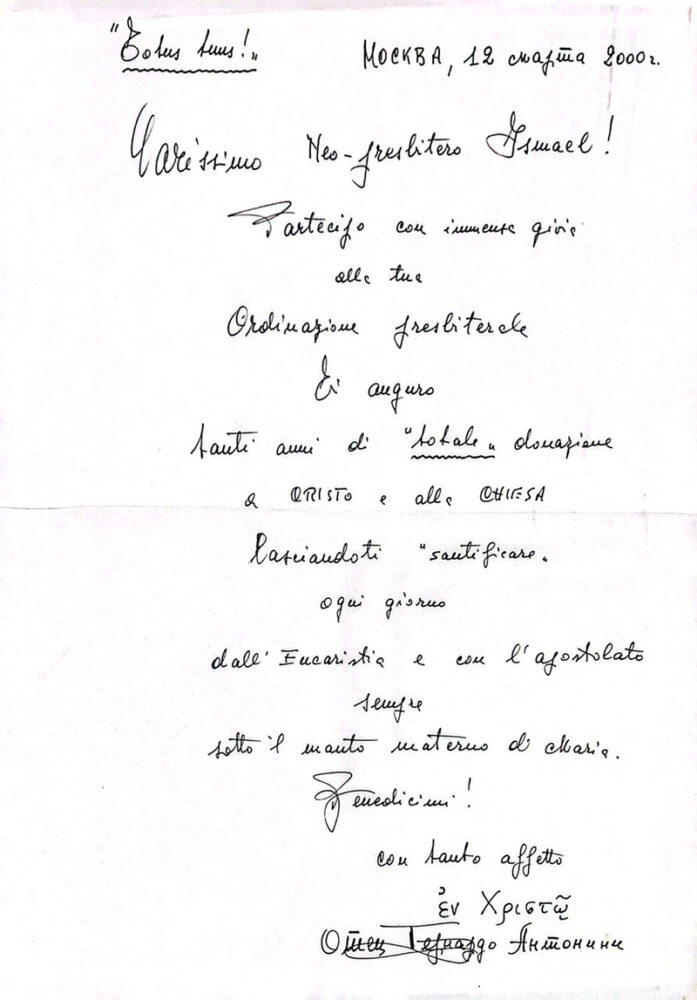 "Totus tuus!"
МОСКВА, 12 марта 2000г.
Carissimo Neo-presbitero Ismael!
Partecipo con immensa gioia
alla tua
Ordinazione presbiterale
Ti auguro
tanti anni di "totale" donazione
a CRISTO e alla CHIESA
lasciandoti "santificare"
ogni giorno
dall'Eucaristia e con l'apostolato
sempre
sotto il manto materno di Maria.
Benedicimi!
con tanto affetto
ἐν Χριστῷ
Отец Бернардо Антонини